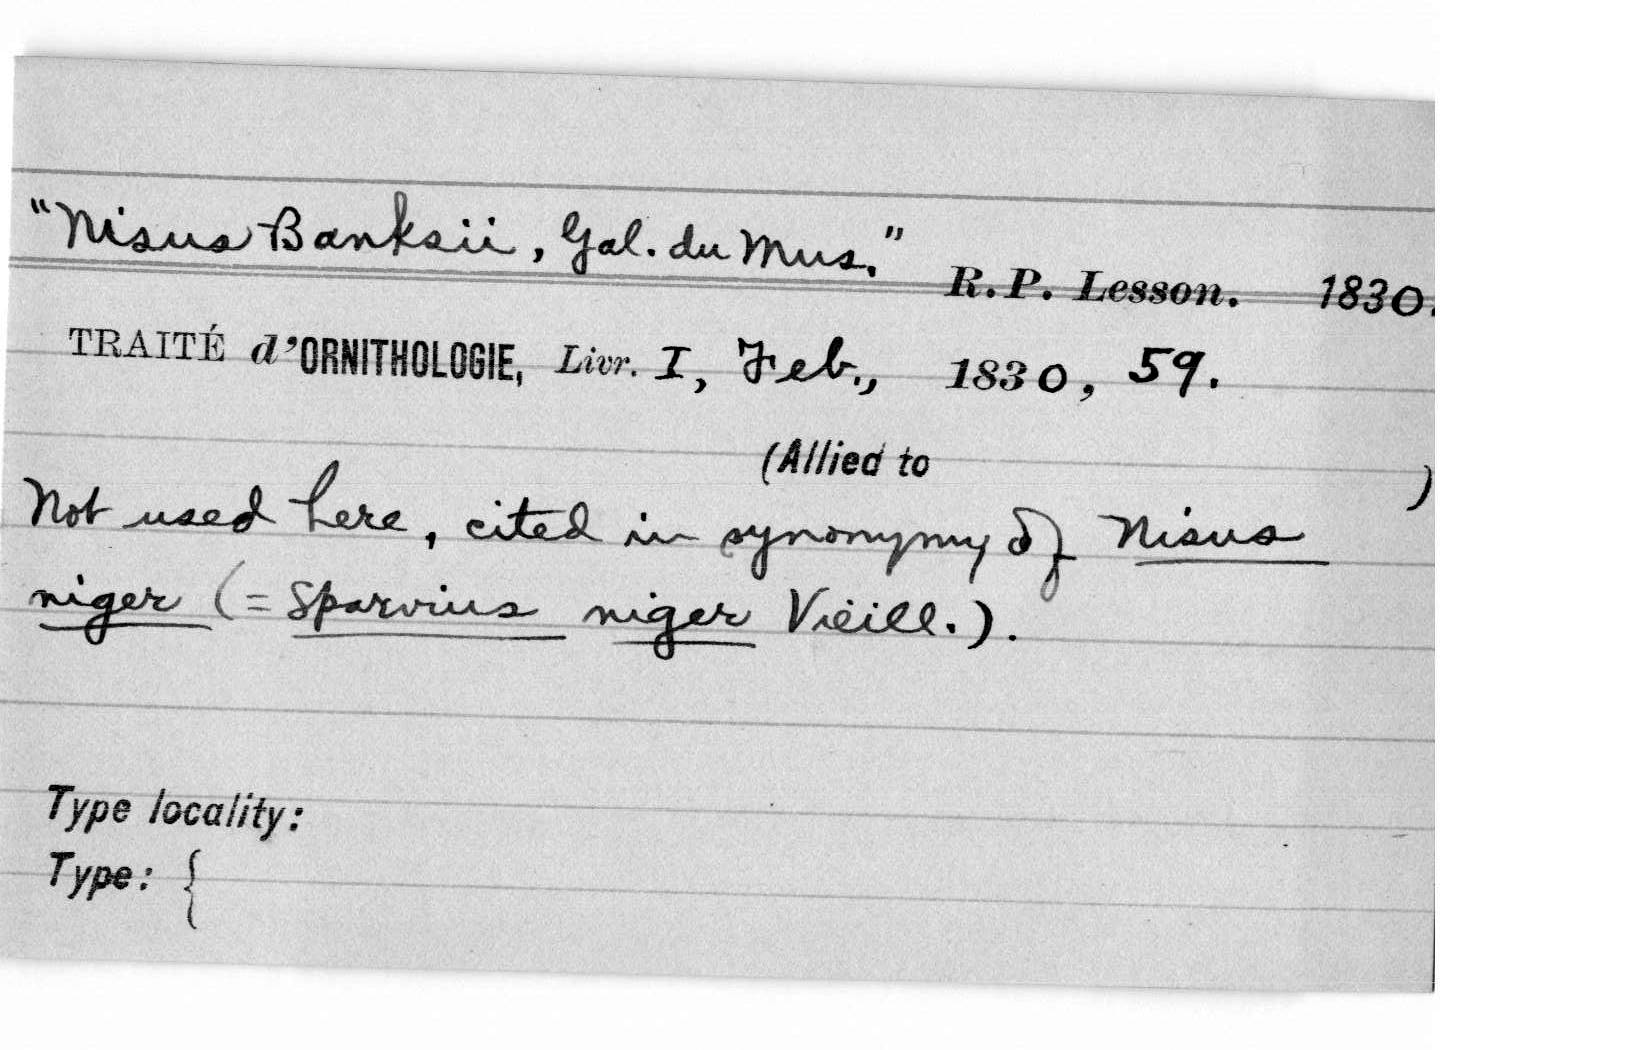 "Nisus Banksii, Gal. du Mus." R. P. Lesson. 1830.
TRAITÉ d'ORNITHOLOGIE, Livr. I, Feb., 1830, 59.
(Allied to )
Not used here, cited in synonymy of Nisus
niger (= Sparvius niger Vieill.).
Type locality:
Type: {